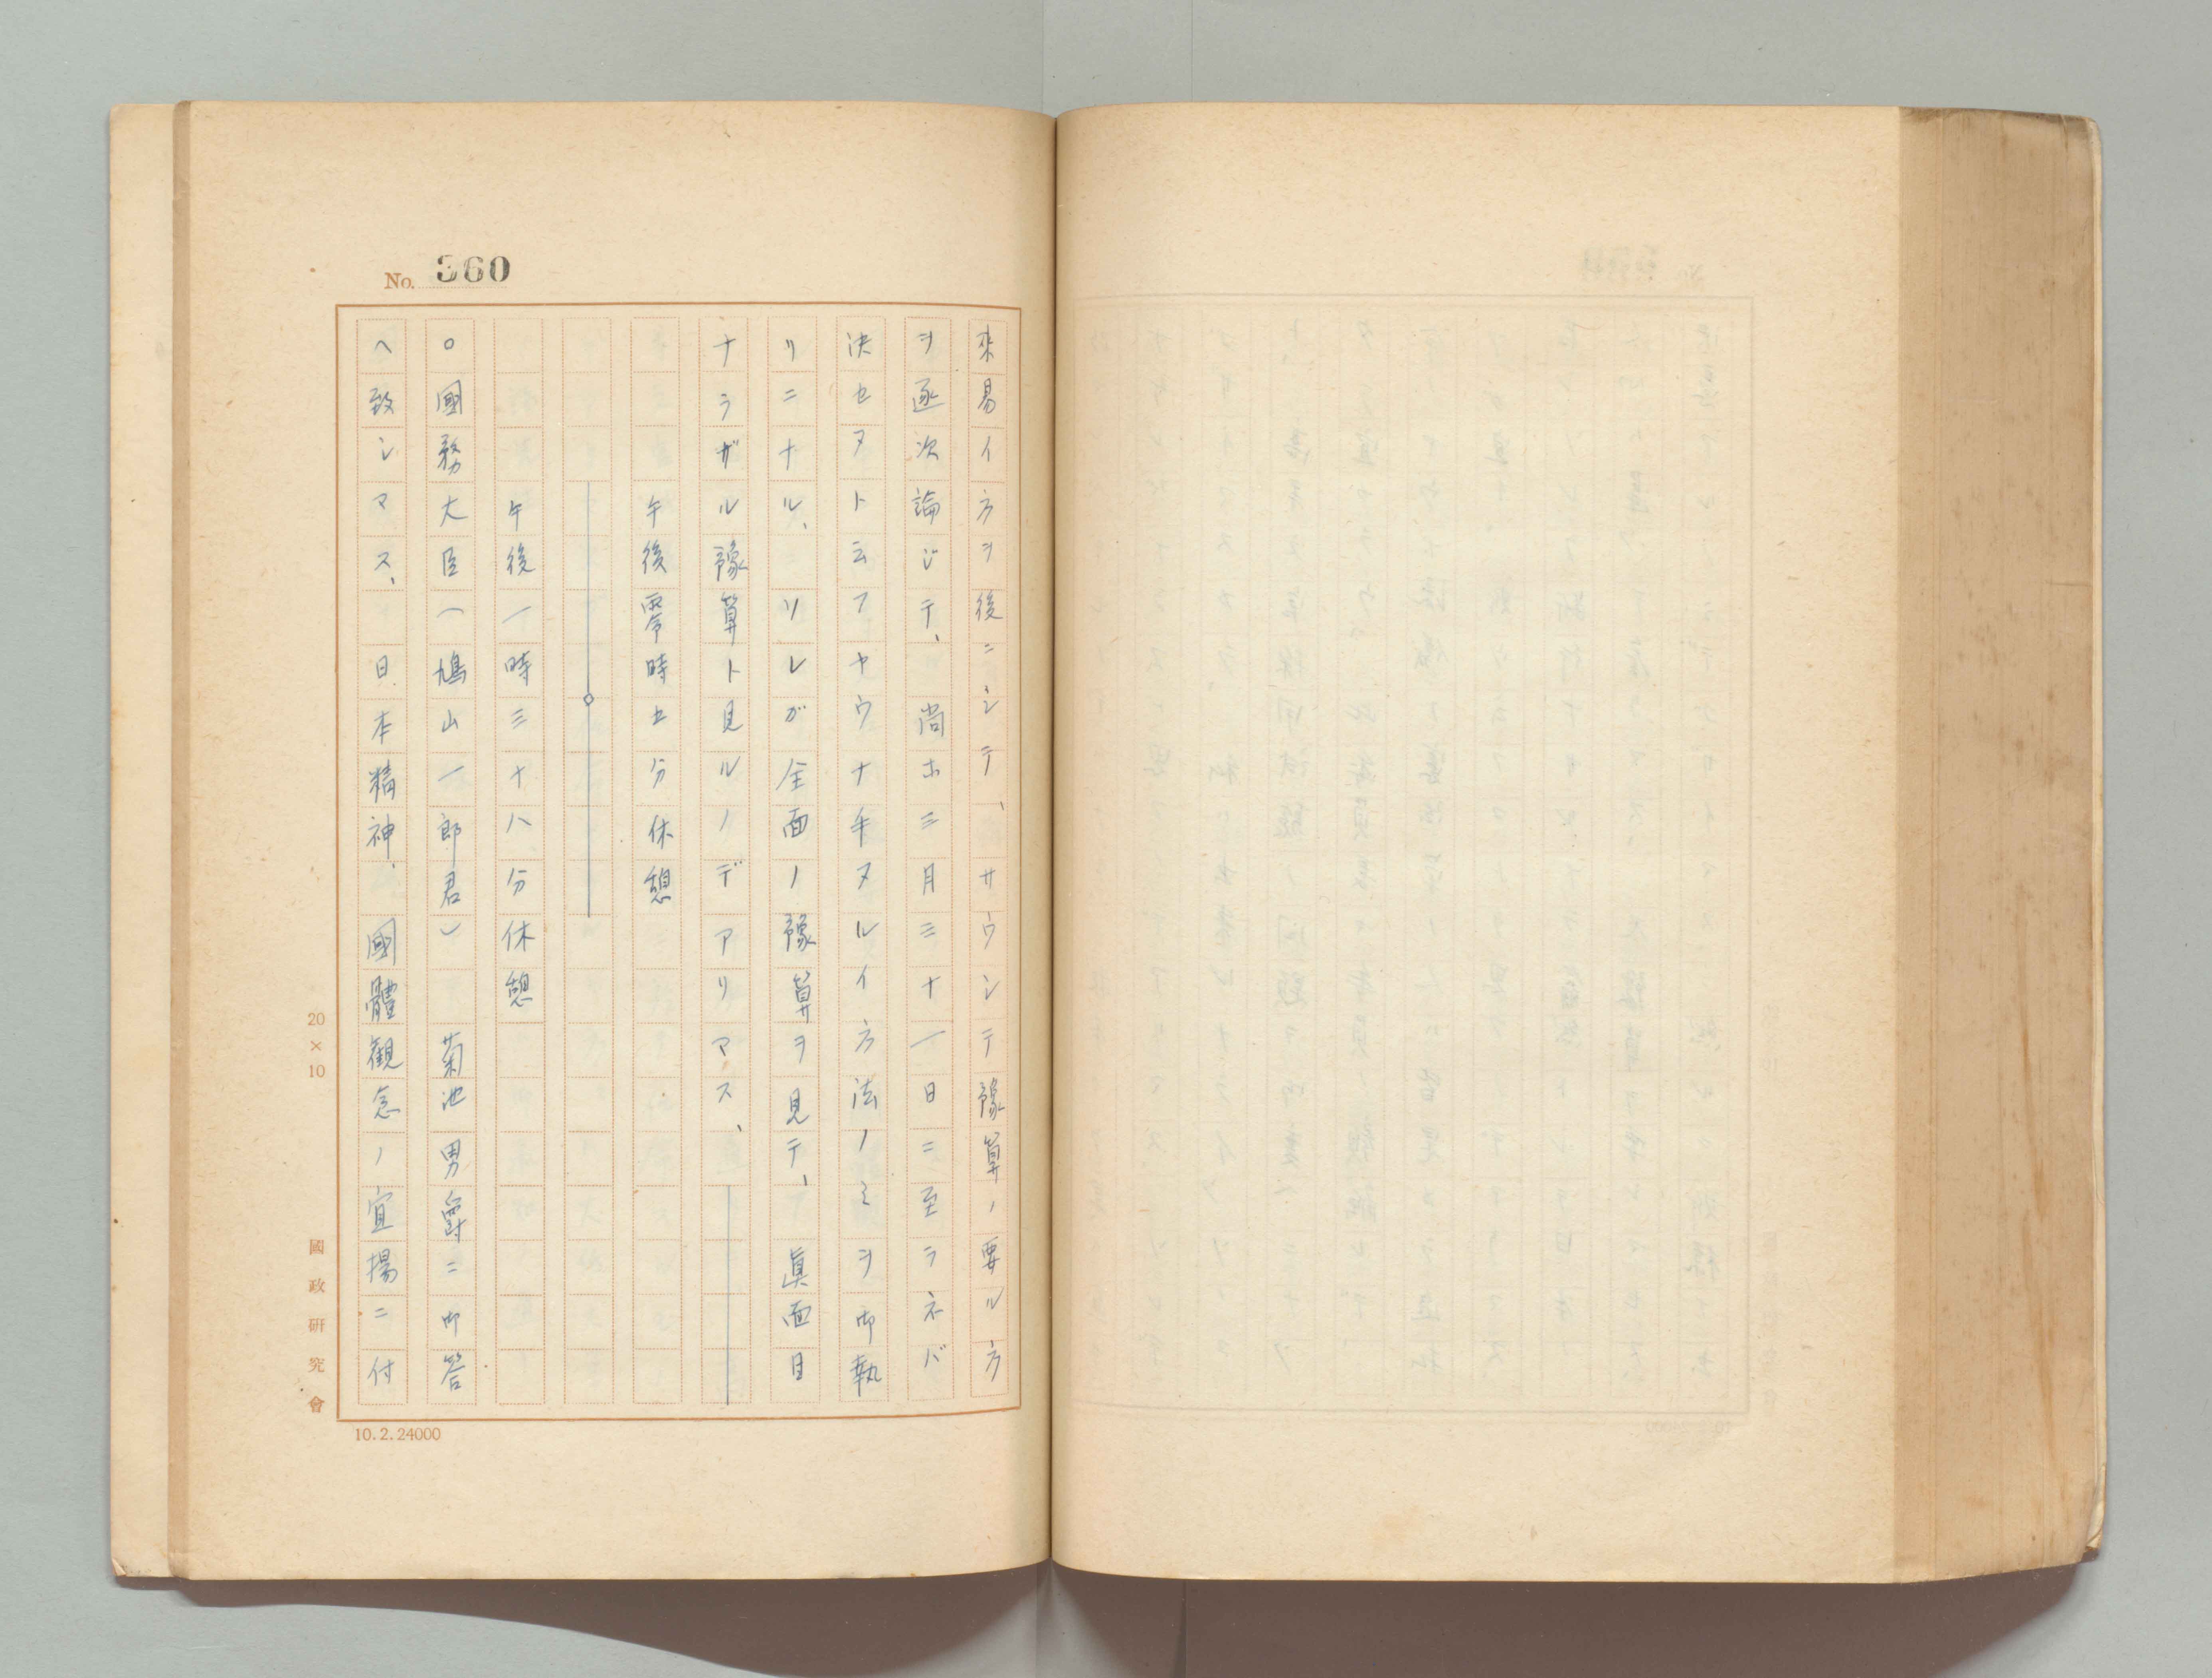 No. 360
來易イ方ヲ後ニシテ、サウシテ豫算ノ要ル方
ヲ逐次論ジテ、尚ホ三月三十一日ニ至ラネバ
決セヌト云フヤウナ手ヌルイ方法ノミヲ御執
リニナル、ソレガ全面ノ豫算ヲ見テ、眞面目
ナラザル豫算ト見ルノデアリマス、
午後零時五分休憩
午後一時三十八分休憩
○國務大臣(鳩山一郎君) 菊池男爵ニ御答
ヘ致シマス、日本精神、國體觀念ノ宣揚ニ付
20×10
國政研究會
10.2.24000